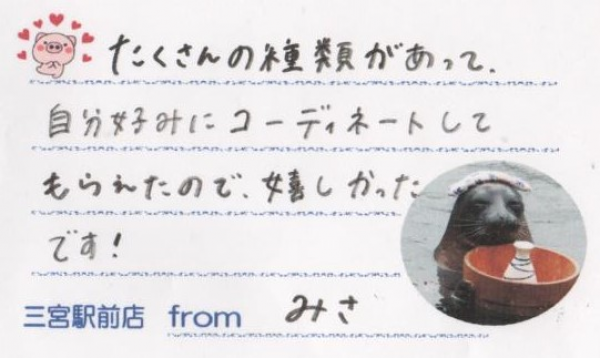 たくさんの種類があって、
自分好みにコーディネートして
もらえたので、嬉しかった
です!
三宮駅前店 from みさ